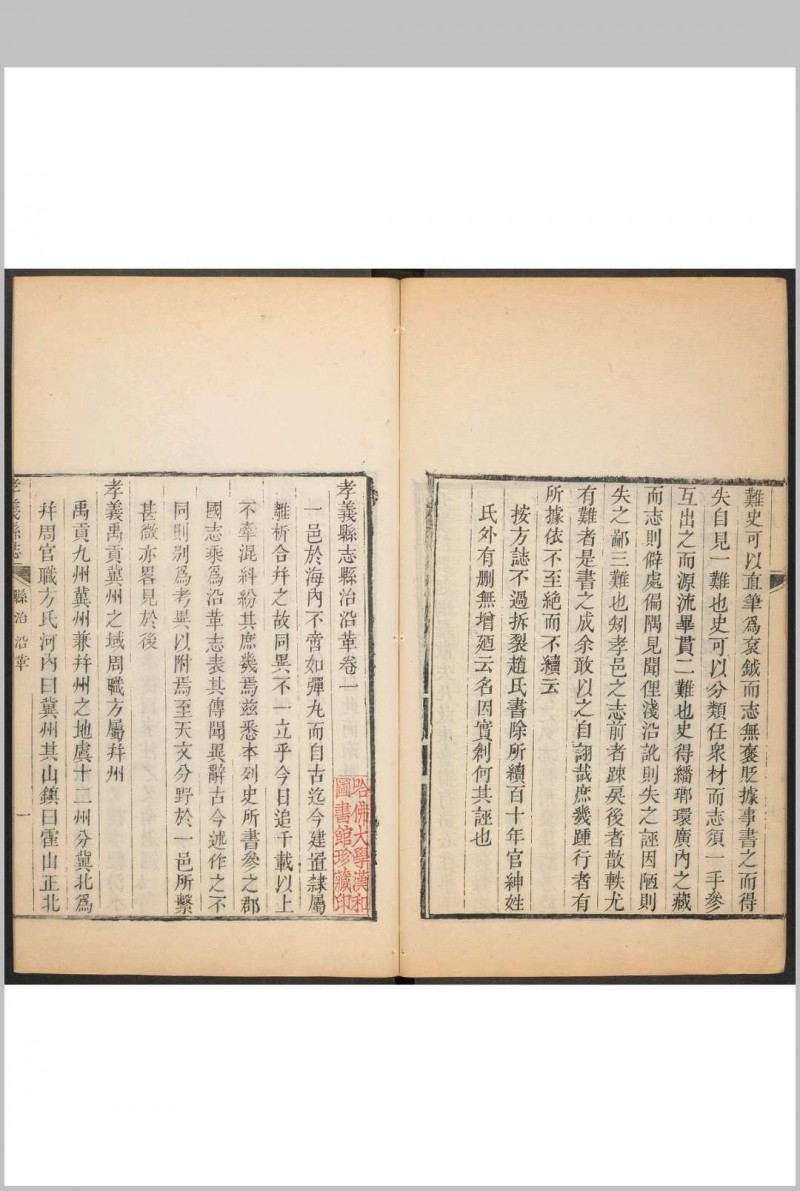 難史可以直筆爲衮鉞而志無褒貶據事書之而得
失自見一難也史可以分類任衆材而志須一手參
互出之而源流畢貫二難也史得繙瑯環廣內之藏
而志則僻處偏隅見聞俚淺沿訛則失之誣因陋則
失之鄙三難也矧孝邑之志前者踈戾後者散軼尤
有難者是書之成余敢以之自詡哉庶幾踵行者有
所據依不至絶而不續云
按方誌不過拆裂趙氏書除所續百十年官紳姓
氏外有刪無增廼云名因實創何其誣也
孝義縣志縣治沿革卷一
一邑於海內不啻如彈丸而自古迄今建置隸屬
離析合幷之故同異不一立乎今日追千載以上
不牽混糾紛其庶幾焉兹悉本列史所書參之郡
國志乘爲沿革志表其傳聞異辭古今述作之不
同則别爲考異以附焉至天文分野於一邑所繫
甚微亦畧見於後
孝義禹貢冀州之域周職方屬幷州
禹貢九州冀州兼幷州之地虞十二州分冀北爲
幷周官職方氏河內曰冀州其山鎮曰霍山正北
孝義縣志
縣治 沿革
一
哈佛大學漢和
圖書館珍藏印